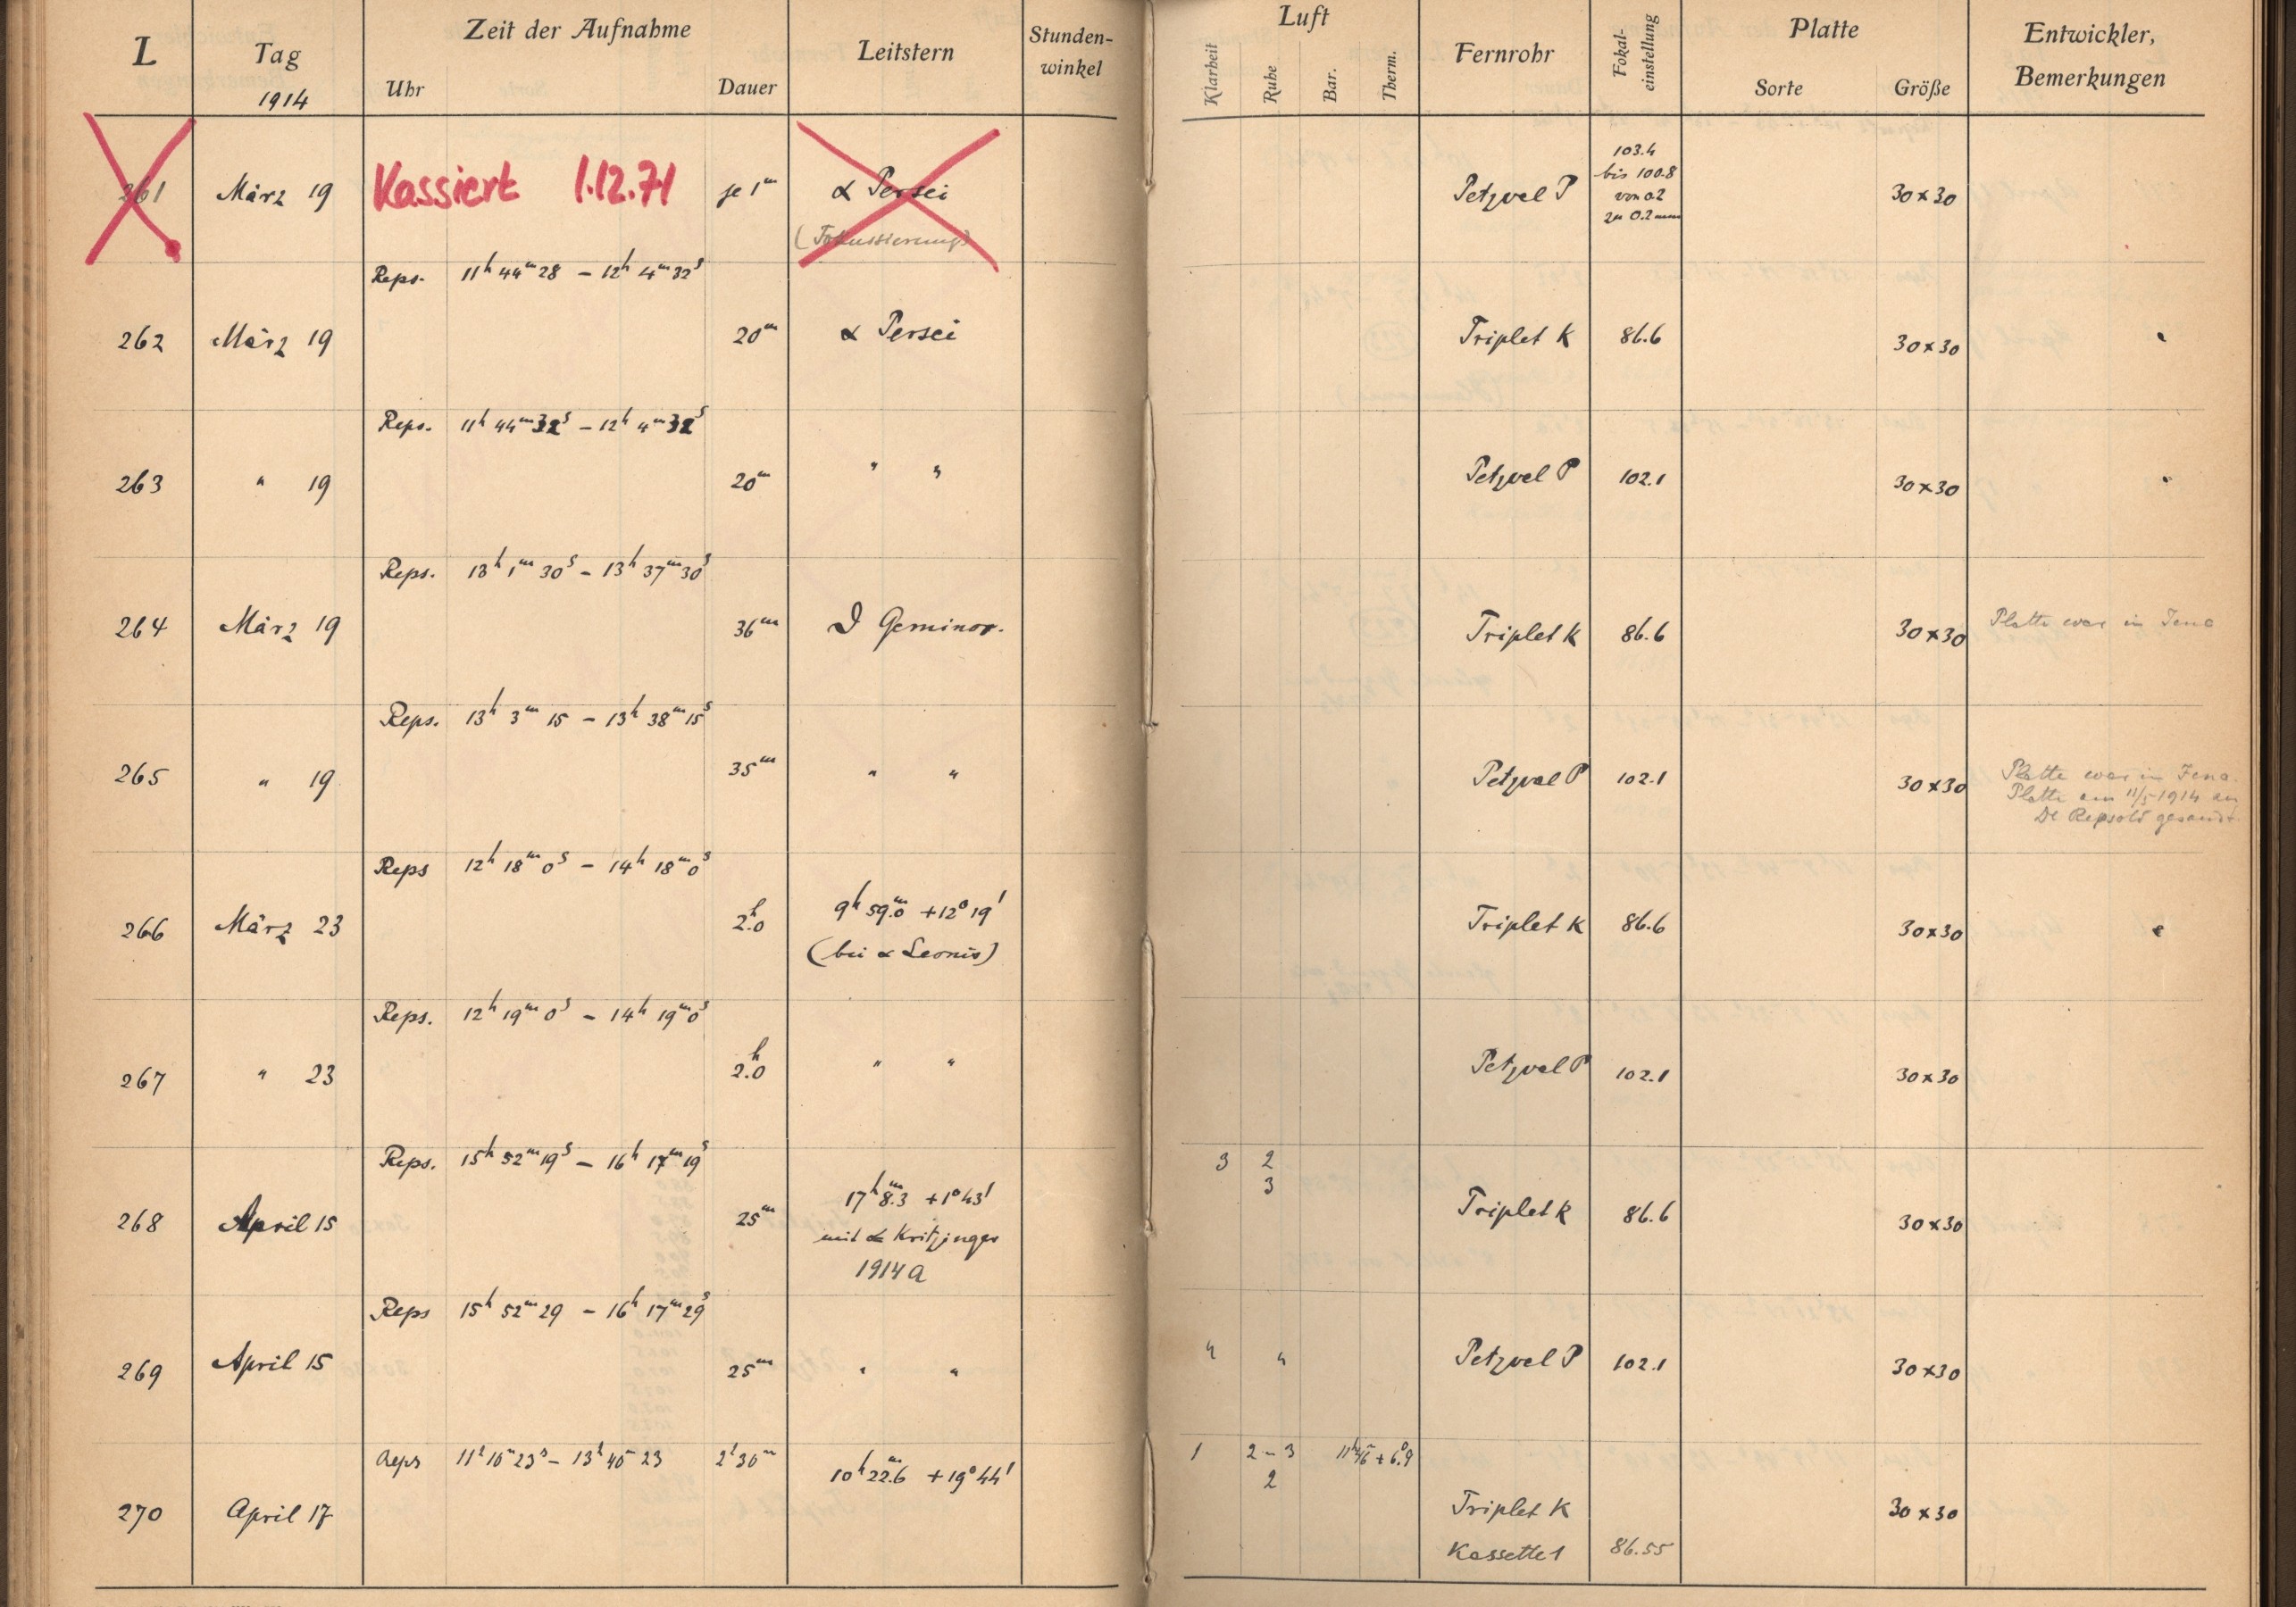 L Tag 1914 Zeit der Aufnahme Uhr Dauer Leitstern Stunden-winkel Luft Klarheit Ruhe Bar. Therm. Fernrohr Fokal-einstellung Platte Sorte Größe Entwickler, Bemerkungen
261 März 19 Kassiert 1.12.71 je 1m α Persei Petzval P 103.4 30×30
bis 100.8
von 0.2
zu 0.2 mm
(Fokussierung)
Reps. 11h 44m 28 – 12h 4m 32s
262 März 19 20m α Persei Triplet K 86.6 30×30
Reps. 11h 44m 32s – 12h 4m 32s
263 " 19 20m " " Petzval P 102.1 30×30 "
Reps. 13h 1m 30s – 13h 37m 30s
264 März 19 36m Geminor. Triplet K 86.6 30×30 Platte war in Jena
Reps. 13h 3m 15 – 13h 38m 15s
265 " 19 35m " " Petzval P 102.1 30×30 Platte war in Jena.
Platte am 11/5 1914 an
Repsold gesandt
Reps 12h 18m 0s – 14h 18m 0s
266 März 23 2h.0 9h 59m.0 +12° 19' Triplet K 86.6 30×30
(bei α Leonis)
Reps. 12h 19m 0s – 14h 19m 0s
267 " 23 2h.0 " " Petzval P 102.1 30×30
Reps. 15h 52m 19s – 16h 17m 19s 3 2
3
268 April 15 25m 17h 8m.3 +1° 43' Triplet K 86.6 30×30
mit Kritzinger
1914 a
Reps 15h 52m 29 – 16h 17m 29s
269 April 15 25m " " " " Petzval P 102.1 30×30
Reps 11h 10m 23s – 13h 40m 23 2h 30m 10h 22m.6 +19° 44' 1 2–3 11h 46m +6°.9
2
270 April 17 Triplet K 30×30
Kassette 1 86.55